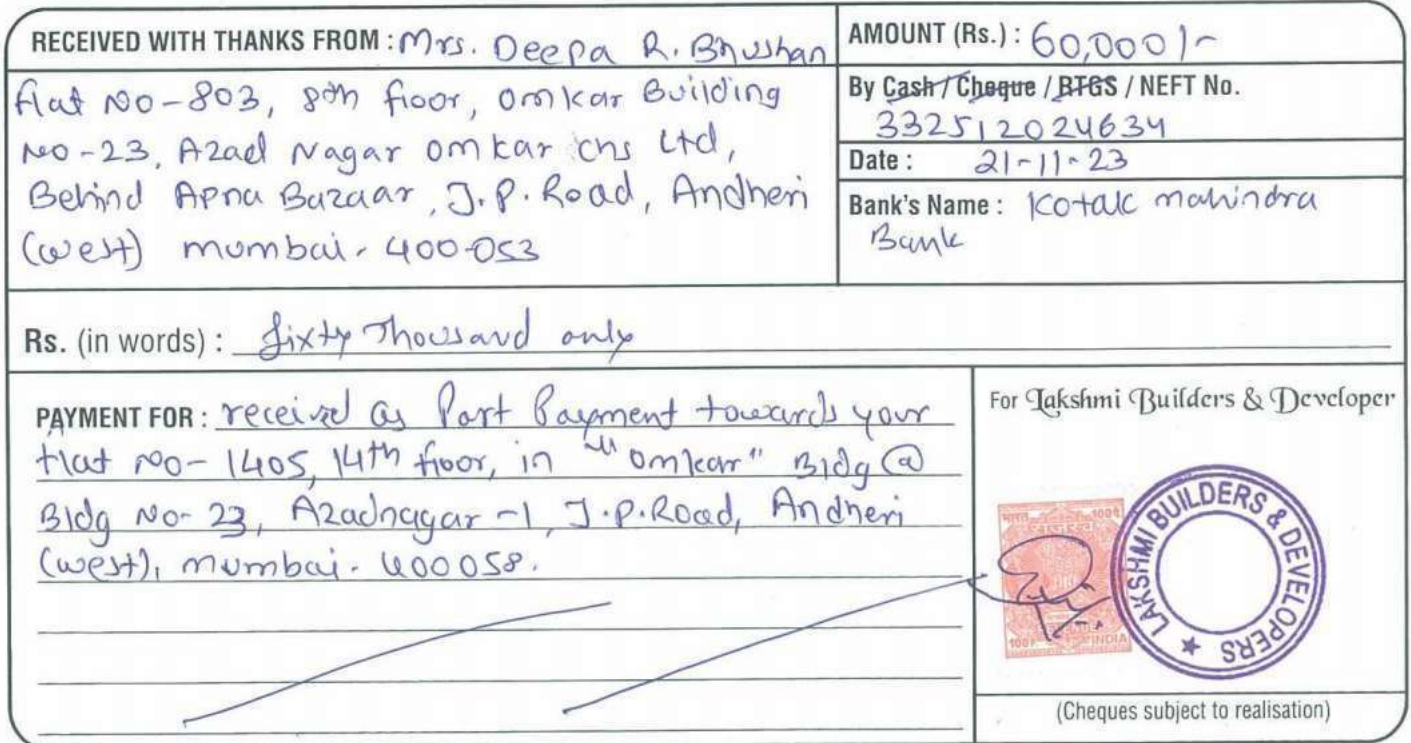 RECEIVED WITH THANKS FROM : Mrs. Deepa R. Bhushan
flat No-803, 8th floor, Omkar Building
No-23, Azad Nagar Omkar chs Ltd,
Behind Apna Bazaar, J.P. Road, Andheri
(west) mumbai. 400-053
AMOUNT (Rs.) : 60,000/-
By Cash / Cheque / RTGS / NEFT No.
332512024634
Date : 21-11-23
Bank's Name : Kotak mahindra
Bank
Rs. (in words) : Sixty Thousand only
PAYMENT FOR : received as Part Payment towards your
flat No- 1405, 14th floor, in "Omkar" Bldg @
Bldg No- 23, Azadnagar-1, J.P.Road, Andheri
(west), mumbai. 400058.
For Lakshmi Builders & Developer
LAKSHMI BUILDERS & DEVELOPERS
INDIA
(Cheques subject to realisation)